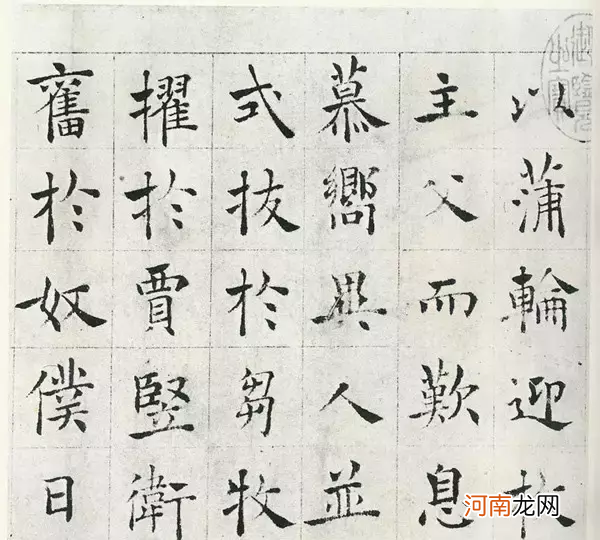 以蒲輪迎枚
主父而歎息
慕嚮異人並
式拔於芻牧
擢於賈豎衛
奮於奴僕日
河南龙网